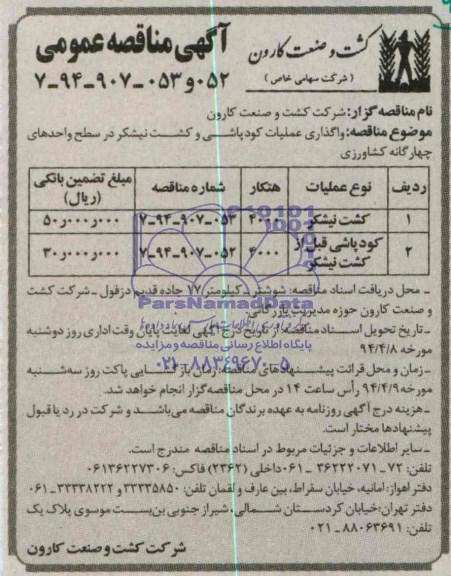 کشت و صنعت کارون
( شرکت سهامی خاص )
آگهی مناقصه عمومی
۰۵۲ و ۰۵۳-۹۰۷-۹۴-۷
نام مناقصه گزار: شرکت کشت و صنعت کارون
موضوع مناقصه: واگذاری عملیات کودپاشی و کشت نیشکر در سطح واحدهای
چهارگانه کشاورزی
ردیف نوع عملیات هکتار شماره مناقصه مبلغ تضمین بانکی (ریال)
۱ کشت نیشکر ۲۰۰۰ ۰۵۳-۹۰۷-۹۴-۷ ۵۰ر۰۰۰ر۰۰۰
۲ کودپاشی قبل از کشت نیشکر ۴۰۰۰ ۰۵۲-۹۰۷-۹۴-۷ ۳۰ر۰۰۰ر۰۰۰
ـ محل دریافت اسناد مناقصه: شوشتر ـ کیلومتر ۱۷ جاده قدیم دزفول ـ شرکت کشت
و صنعت کارون حوزه مدیریت بازرگانی.
ParsNamadData
ـ تاریخ تحویل اسناد مناقصه: از تاریخ درج آگهی لغایت پایان وقت اداری روز دوشنبه
پایگاه اطلاع رسانی مناقصه و مزایده
مورخه ۹۴/۴/۸
۰۲۱-۸۸۳۴۹۶۷۰-۵
ـ زمان و محل قرائت پیشنهادهای مناقصه: زمان بازگشایی پاکت روز سه‌شنبه
مورخه ۹۴/۴/۹ رأس ساعت ۱۴ در محل مناقصه‌گزار انجام خواهد شد.
ـ هزینه درج آگهی روزنامه به عهده برندگان مناقصه می‌باشد و شرکت در رد یا قبول
پیشنهادها مختار است.
ـ سایر اطلاعات و جزئیات مربوط در اسناد مناقصه مندرج است.
تلفن: ۷۲ـ ۳۶۲۲۲۰۷۱ ـ۰۶۱ داخلی (۲۳۶۲) فاکس: ۰۶۱۳۶۲۲۷۳۰۶
دفتر اهواز: امانیه، خیابان سقراط، بین عارف و لقمان تلفن: ۳۳۳۳۵۸۵۰ و ۳۳۳۳۸۲۲۲ـ۰۶۱
دفتر تهران: خیابان کردستان شمالی، شیراز جنوبی بن‌بست موسوی پلاک یک
تلفن: ۸۸۰۶۳۶۹۱ ـ ۰۲۱
شرکت کشت و صنعت کارون